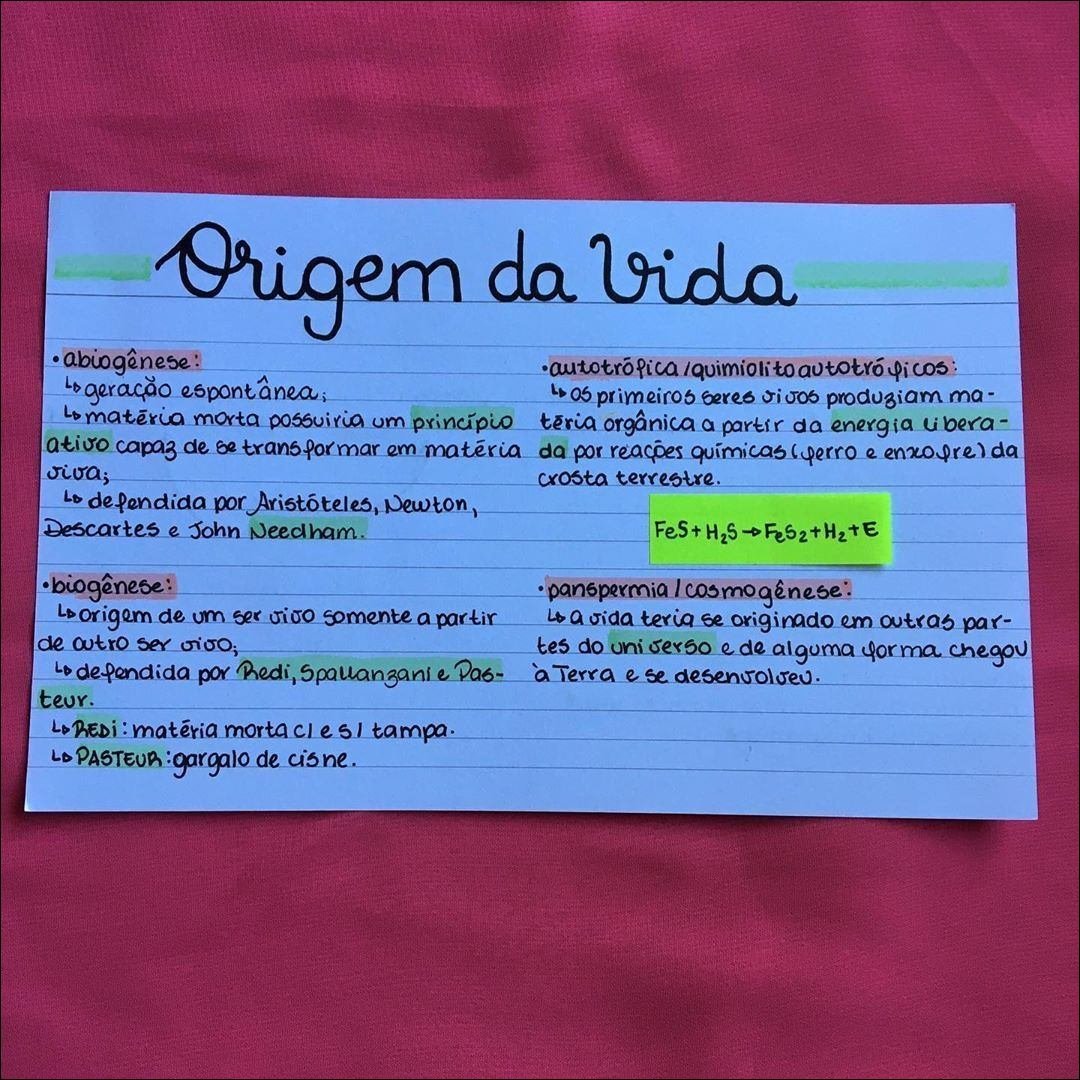 Origem da Vida
• abiogênese:
↳ geração espontânea;
↳ matéria morta possuiria um princípio
ativo capaz de se transformar em matéria
viva;
↳ defendida por Aristóteles, Newton,
Descartes e John Needham.
• biogênese:
↳ origem de um ser vivo somente a partir
de outro ser vivo;
↳ defendida por Redi, Spallanzani e Pas-
teur.
↳ REDi: matéria morta c/ e s/ tampa.
↳ PASTEUR: gargalo de cisne.
• autotrófica / quimiolitoautotróficos:
↳ os primeiros seres vivos produziam ma-
téria orgânica a partir da energia libera-
da por reações químicas (ferro e enxofre) da
crosta terrestre.
FeS + H₂S → FeS₂ + H₂ + E
• panspermia / cosmogênese:
↳ a vida teria se originado em outras par-
tes do universo e de alguma forma chegou
à Terra e se desenvolveu.